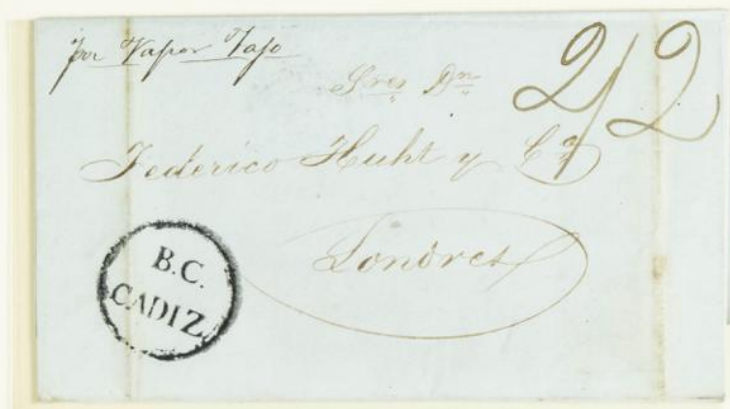 por Vapor Tajo
2/2
Sres Dn
Federico Huht y Ca
Londres
B.C.
CADIZ